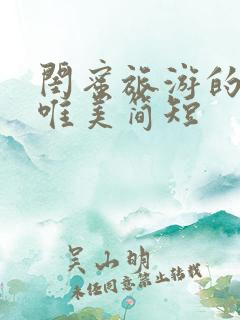 闺蜜旅游的
唯美简短
吴山明
未经同意禁止转载